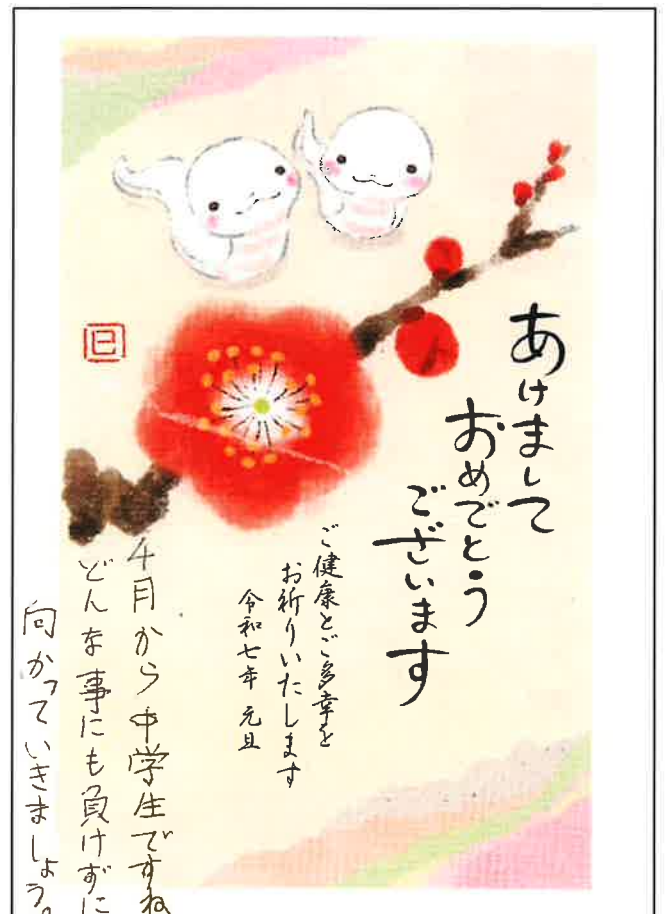 あけまして
おめでとう
ございます
ご健康とご多幸を
お祈りいたします
令和七年 元旦
巳
4月から中学生ですね
どんな事にも負けずに
向かっていきましょう。